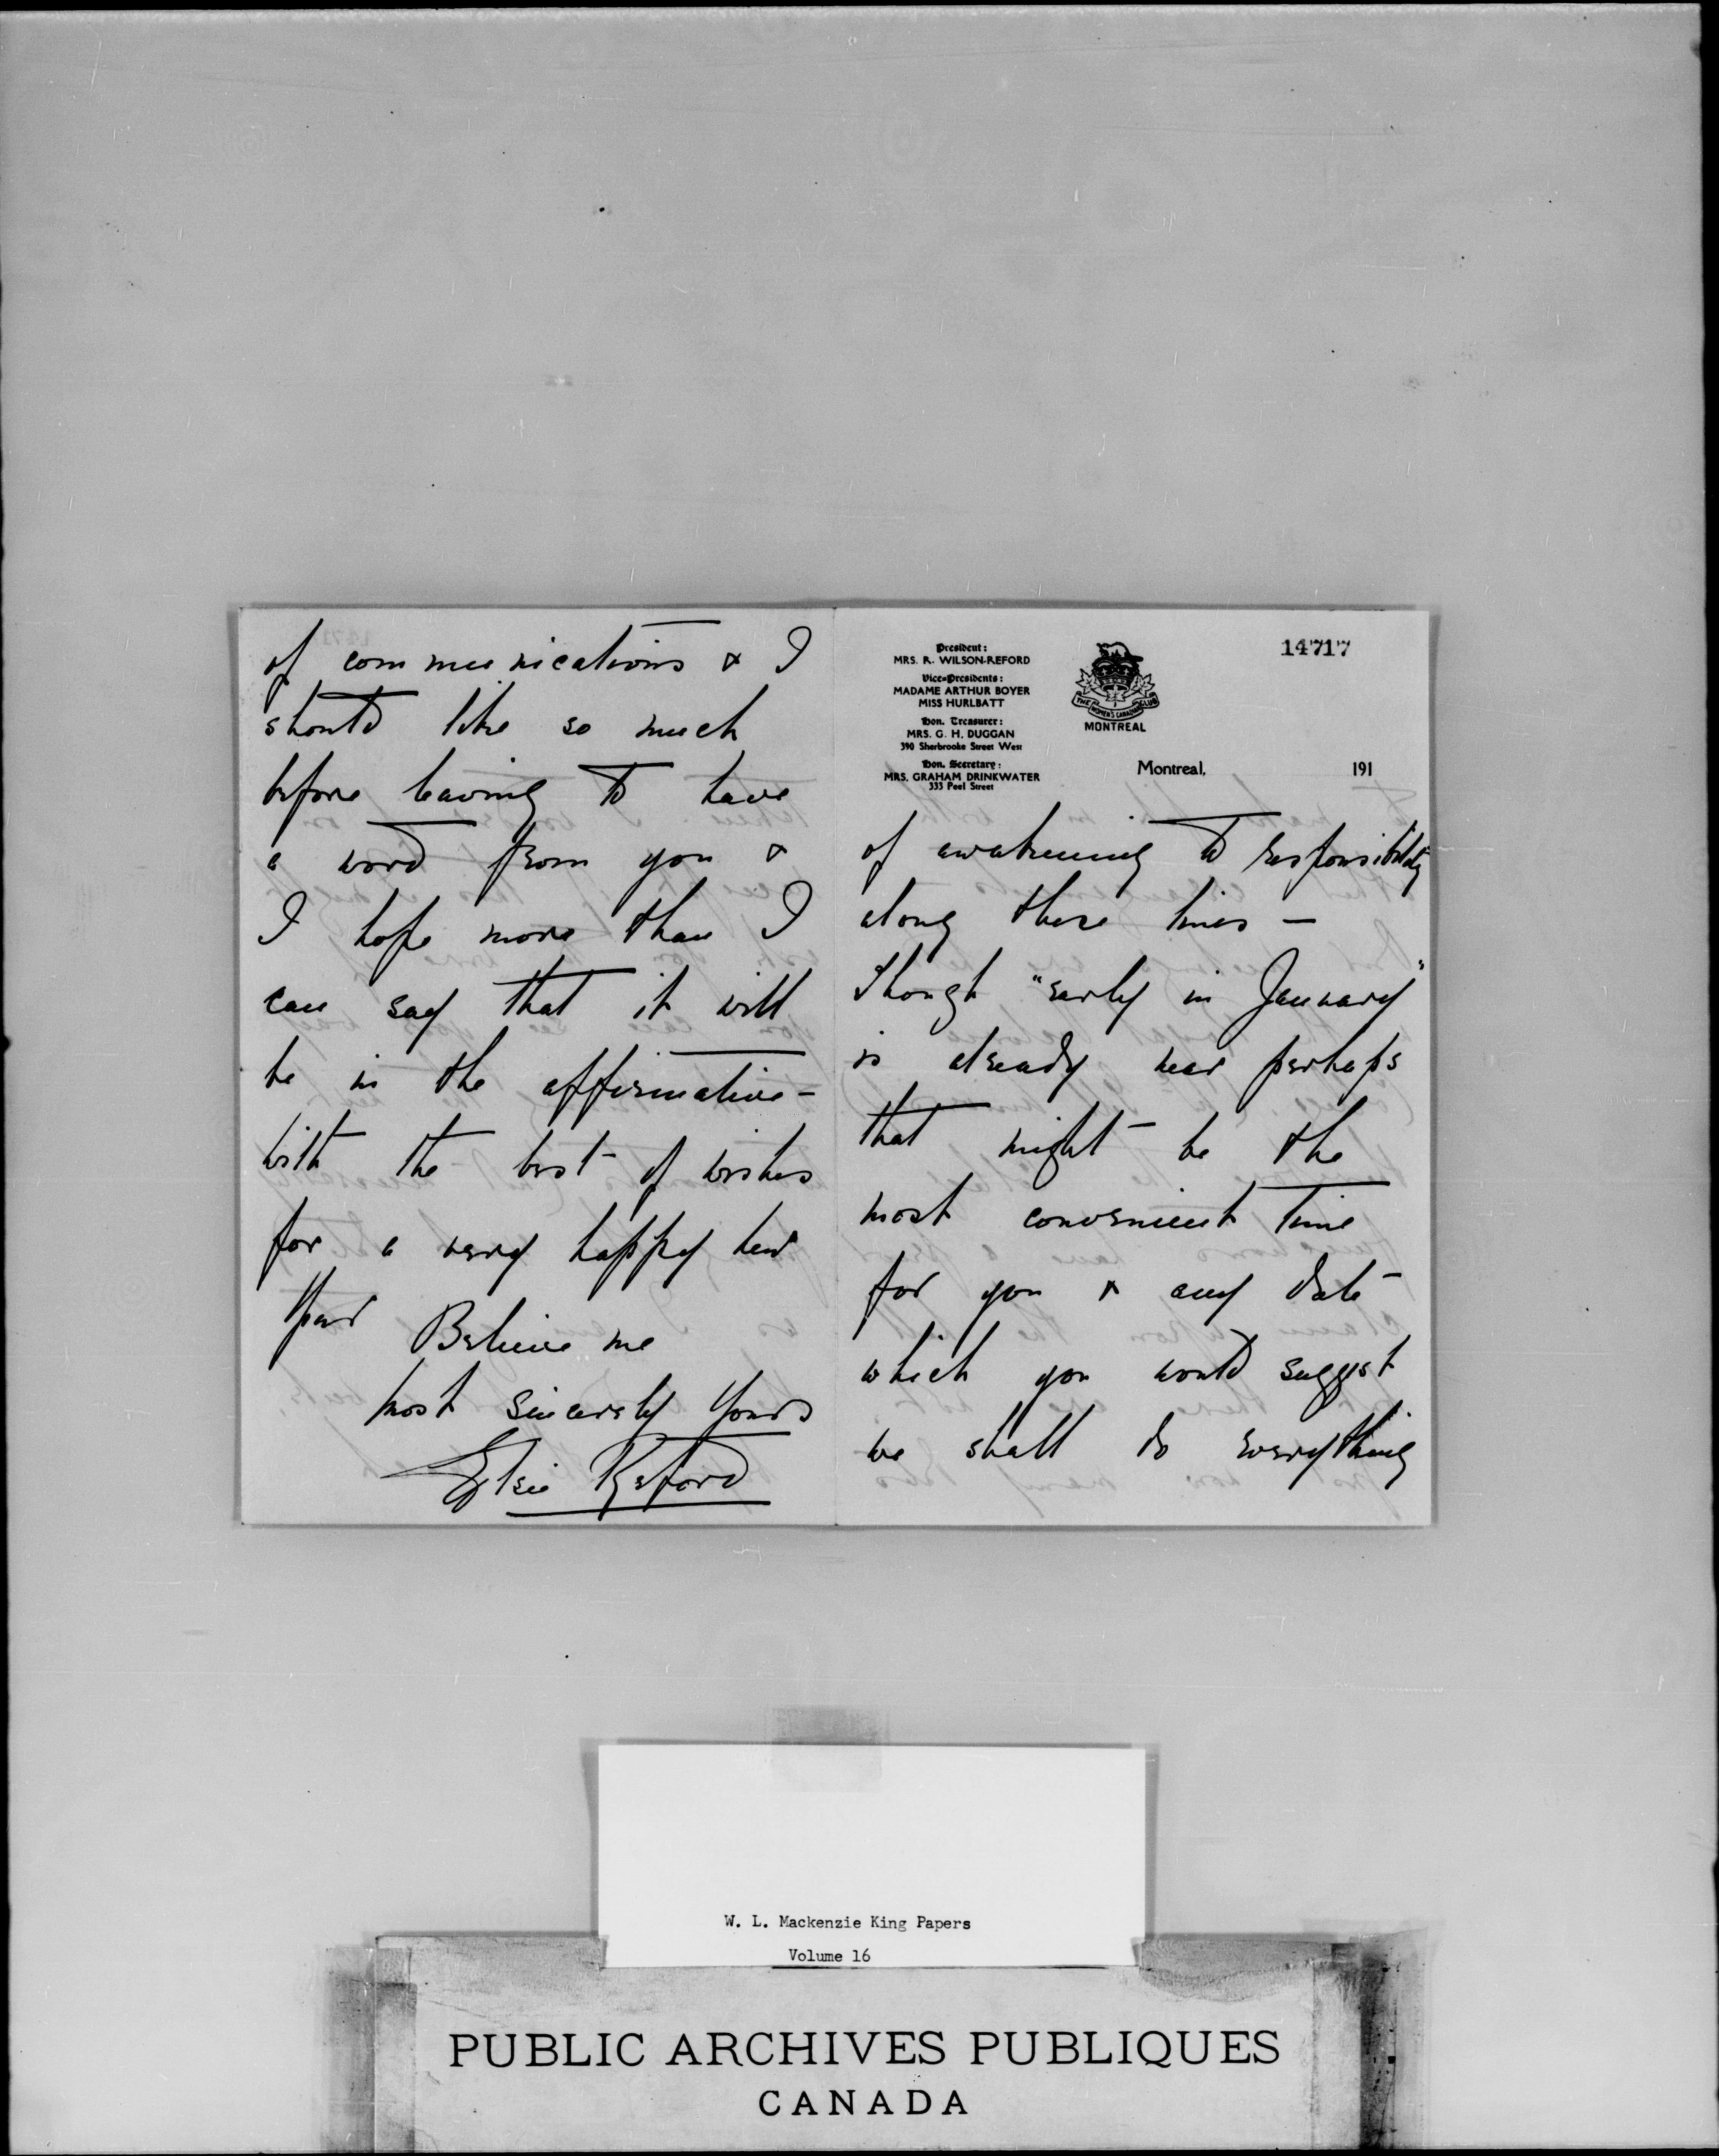 of communications & I
should like so much
before leaving to have
a word from you &
I hope more than I
can say that it will
be in the affirmative -
With the best of wishes
for a very happy New
Year Believe me
Most sincerely Yours
Elsie Reford
14717
President:
MRS. R. WILSON-REFORD
Vice-Presidents:
MADAME ARTHUR BOYER
MISS HURLBATT
Hon. Treasurer:
MRS. G. H. DUGGAN
390 Sherbrooke Street West
Hon. Secretary:
MRS. GRAHAM DRINKWATER
333 Peel Street
THE WOMEN'S CANADIAN CLUB
MONTREAL
Montreal, 191
of awakening to responsibility
along these lines —
Though "early in January"
is already near perhaps
that might be the
most convenient time
for you & any date
which you would suggest
we shall do everything
W. L. Mackenzie King Papers
Volume 16
PUBLIC ARCHIVES PUBLIQUES
CANADA